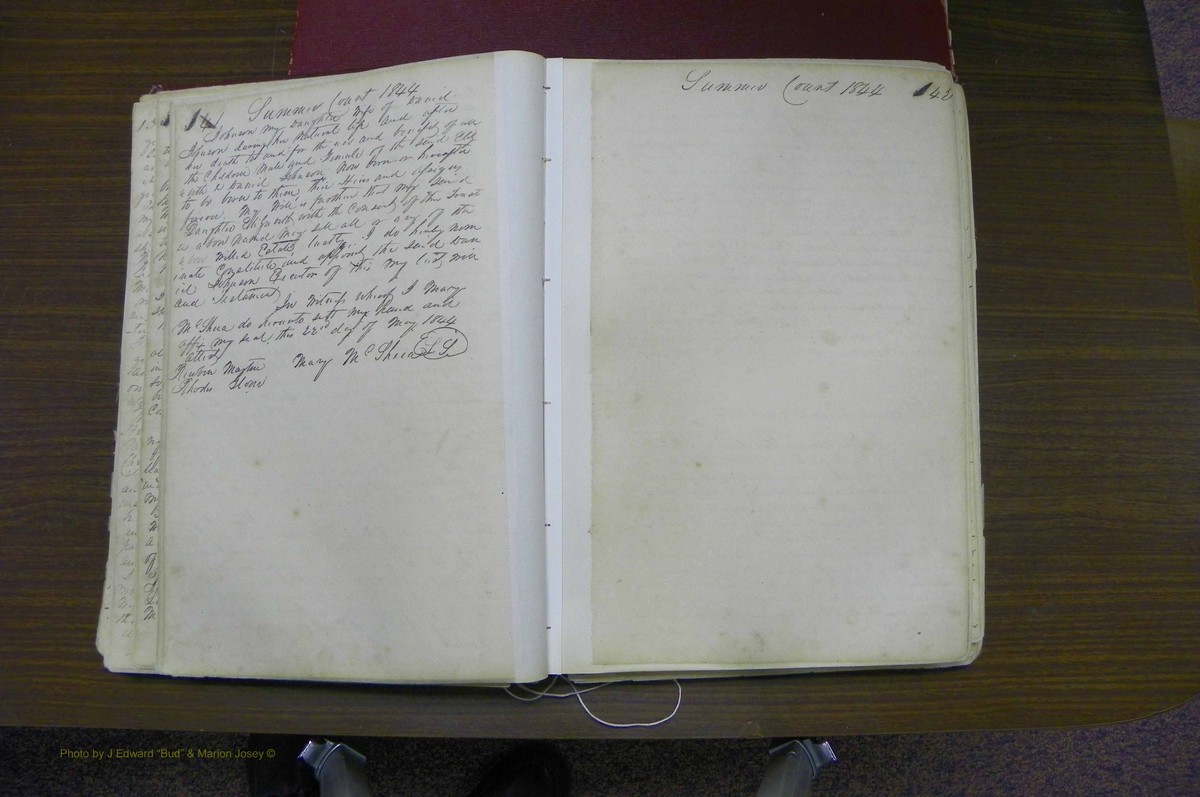 141 Summer Court 1844
Johnson my Daughter wife of David
Johnson during her Natural life and after
her death to and for the use and benefit of all
the Children Male and Female of the said Eliz
abeth & David Johnson Now born or hereafter
to be born to them, their Heirs and assigns
forever. My Will is further that my said
Daughter Elizabeth with the Consent of the Trust
ee above named may sell all or any of the
above willed Estate, lastly. I do hereby nom
inate Constitute and appoint the said Dav
id Johnson Executor of this my last will
and Testament
In Witness whereof I Mary
McShea do hereunto sett my hand and
affix my seal, this 22d day of May 1844
attest
Mary McShea L S
Rhodes
Summer Court 1844 142
Photo by J Edward "Bud" & Marion Josey ©